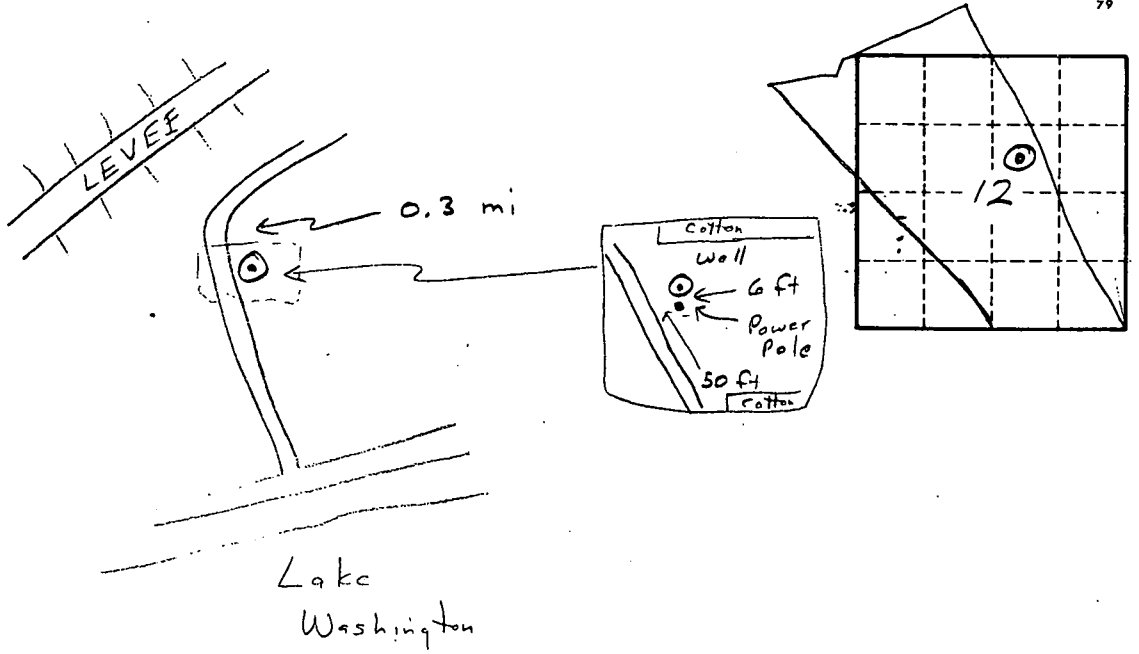 79
LEVEE
0.3 mi
12
Cotton
Well
6 ft
Power
Pole
50 ft
Cotton
Lake
Washington